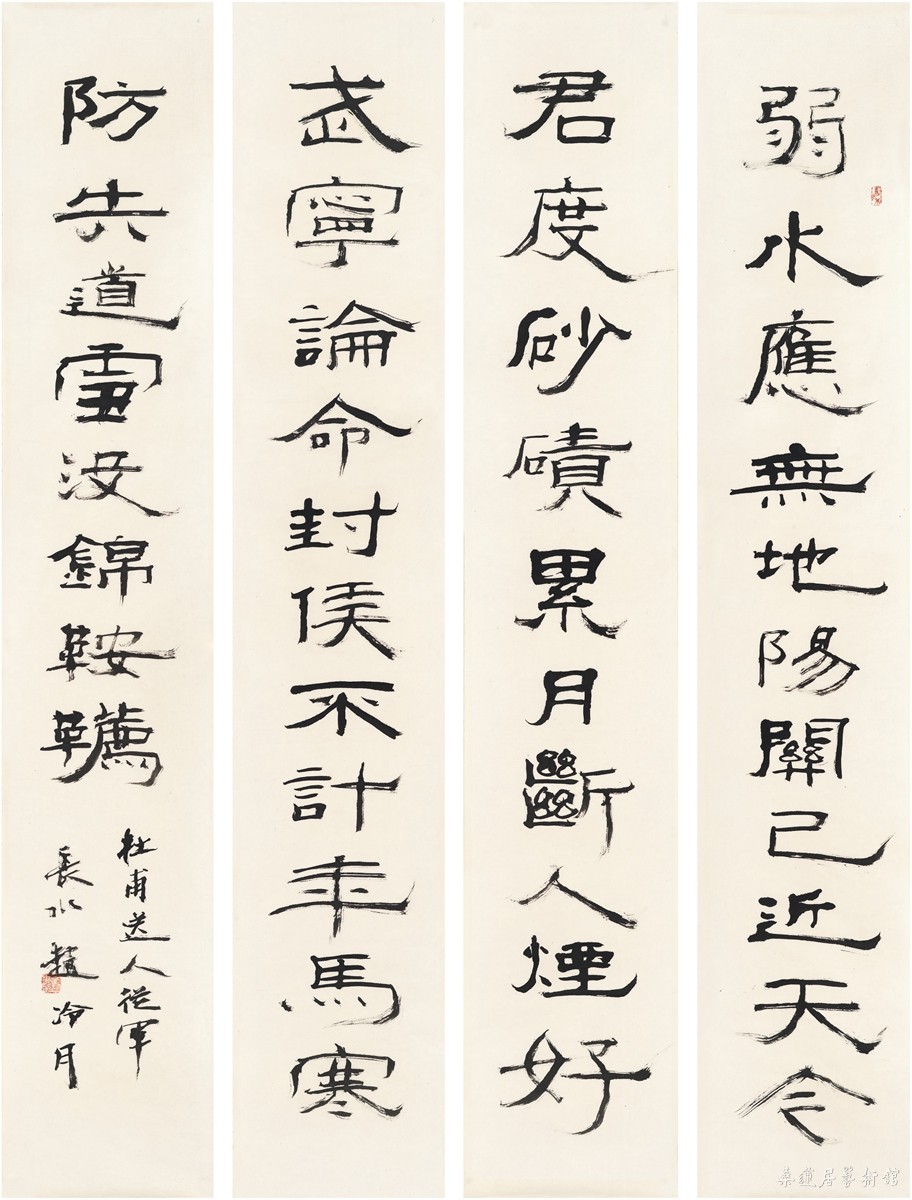 弱水應無地陽關已近天今
君度砂磧累月斷人煙好
武寧論命封侯不計年馬寒
防失道雪沒錦鞍韉
杜甫送人從軍
長水趙冷月
桑蓮居藝術館